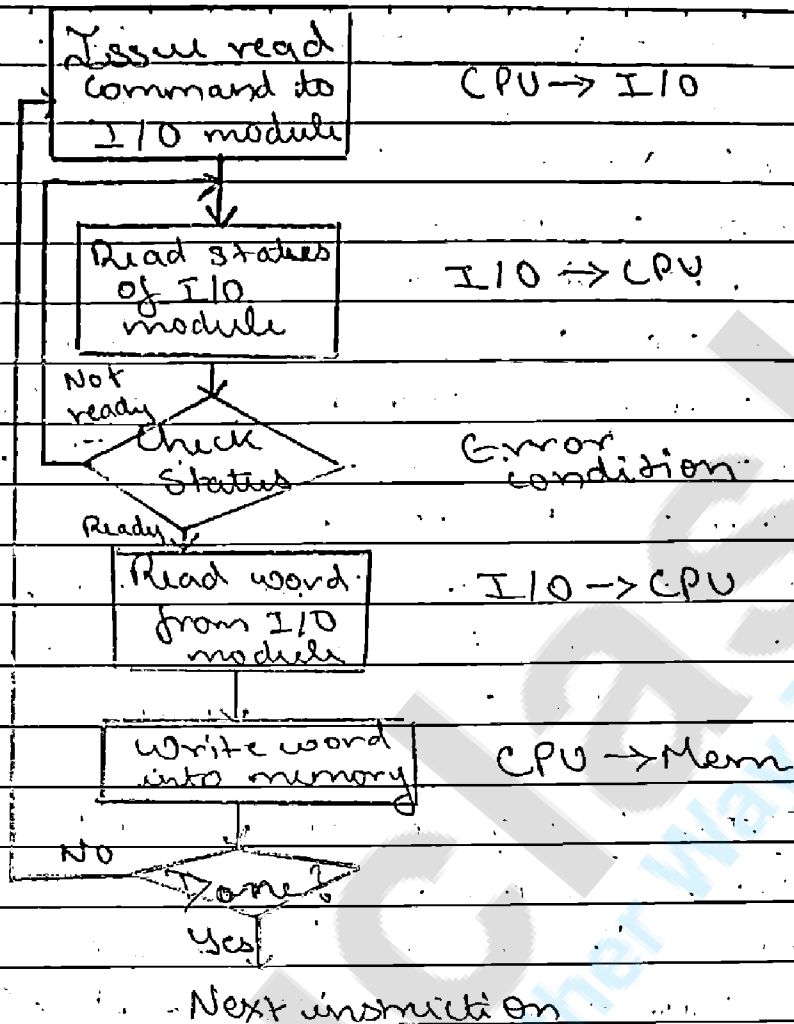 Issue read
command to
I/O module
CPU → I/O
Read status
of I/O
module
I/O → CPU
Not
ready
Check
Status
Error
condition
Ready
Read word
from I/O
module
I/O → CPU
Write word
into memory
CPU → Mem
No
Done?
Yes
Next instruction